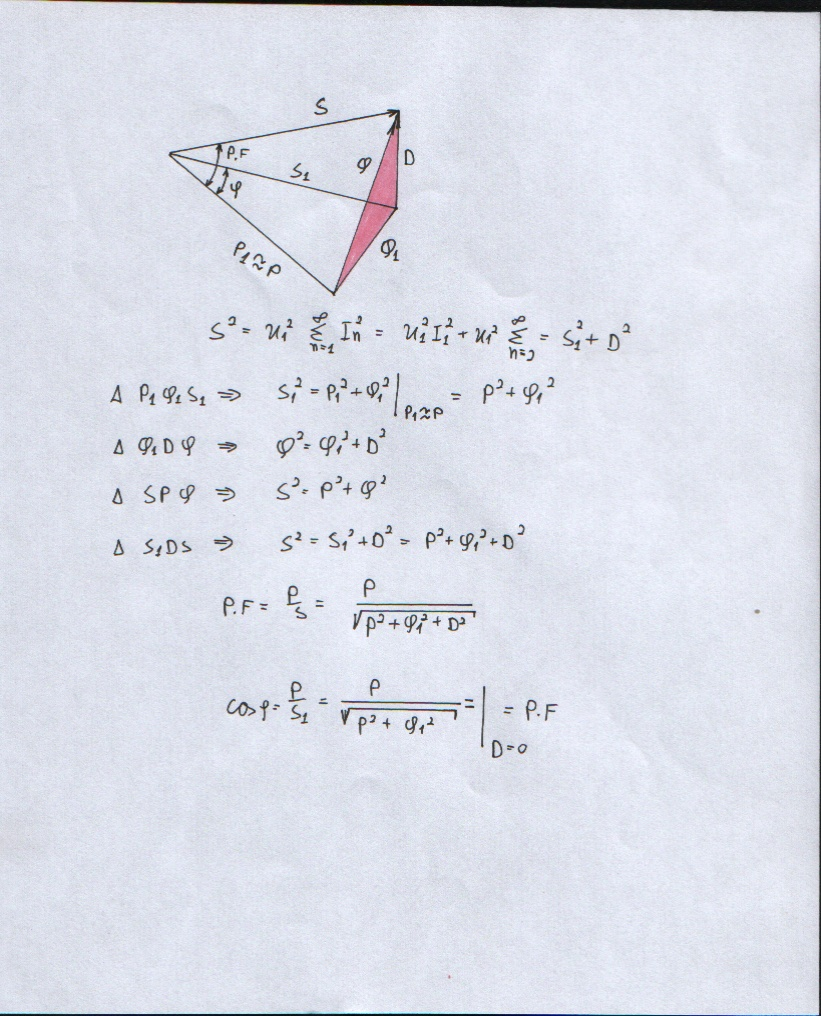 S
P.F
φ
S₁
Q
D
Q₁
P₁≈P
S² = U₁² ∑ₙ₌₁^∞ Iₙ² = U₁²I₁² + U₁² ∑ₙ₌₂^∞ = S₁² + D²
Δ P₁Q₁S₁ ⇒ S₁² = P₁² + Q₁² |P₁≈P = P² + Q₁²
Δ Q₁DQ ⇒ Q² = Q₁² + D²
Δ SPQ ⇒ S² = P² + Q²
Δ S₁DS ⇒ S² = S₁² + D² = P² + Q₁² + D²
P.F = P/S = P/√(P² + Q₁² + D²)
cosφ = P/S₁ = P/√(P² + Q₁²) = |D=0 = P.F